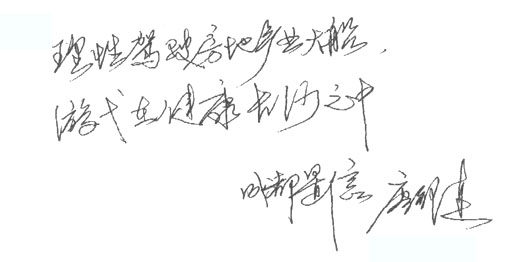 理性驾驶房地产业大船，
游弋在健康长河之中
成都置信 唐明建